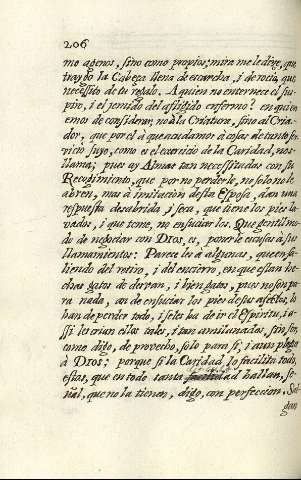 206
mo agenos, sino como propios; mira me le dize, que
traygo la Cabeça llena de escarcha, i de rocio, que
necesito de tu regalo. A quien no enternece el sus-
piro, i el jemido del afligido enfermo? en quien
emos de considerar, no à la Criatura, sino al Cria-
dor, que por el a que acudamos à cosas de tanto ser-
vicio suyo, como es el exercicio de la Caridad, nos
llama; pues ay Almas tan necessitadas con su
Recogimiento, que por no perderle, no solo no le
abren, mas à imitacion desta Esposa, dan una
respuesta desabrida, i seca, que tiene los pies la-
vados, i que teme, no ensuciar los. Que gentil mo-
do de negociar con Dios, es, poner le escusas à su
llamamiento: Parece les à algunas, que en sa-
liendo del retiro, i del encierro, en que estan he-
chas gatos de
para nada, an de ensuciar los pies de sus afectos, lo
han de perder todo, i se les ha de ir el Espiritu, i a-
ssi lo crian ellas tales, i tan amilanados, sin
como digo, de provecho, solo para si; i aun plega
à Dios; porque si la Caridad lo facilita todo,
estas, que en todo tanta dad hallan, se-
ñal, que no la tienen, digo, con perfeccion. Sal-
gan